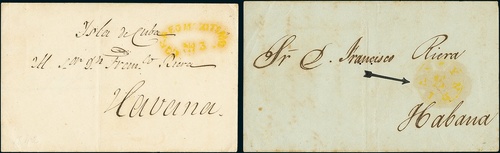 Isla de Cuba
Al Sor. Dn. Franco. Riera
Havana.
Sr. D. Francisco Riera
Habana